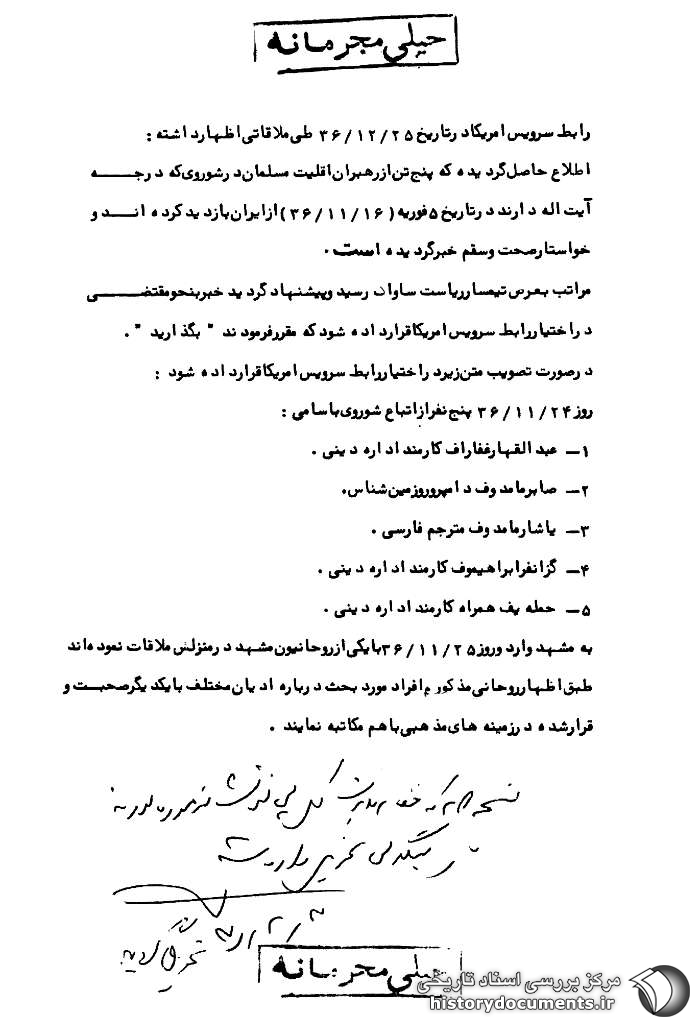 خیلی محرمانه
رابط سرویس امریکا در تاریخ ۳۶/۱۲/۲۵ طی ملاقاتی اظهار داشته :
اطلاع حاصل گردیده که پنج تن از رهبران اقلیت مسلمان در شوروی که درجــه
آیت اله دارند در تاریخ ۵ فوریه (۳۶/۱۱/۱۶) از ایران بازدید کرده انــد و
خواستار صحت و سقم خبر گردیده است .
مراتب بعرض تیمسار ریاست ساواک رسید و پیشنهاد گردید خبر بنحو مقتضــی
در اختیار رابط سرویس امریکا قرار داده شود که مقرر فرمودند " بگذارید " .
در صورت تصویب متن زیر در اختیار رابط سرویس امریکا قرار داده شود :
روز ۳۶/۱۱/۲۴ پنج نفر از اتباع شوروی باسامی :
۱ــ عبد القهار غفاراف کارمند اداره دینی .
۲ــ صابر مامدوف دامپرور و زمین شناس .
۳ــ یاشار مامدوف مترجم فارسی .
۴ــ گزانفر ابراهیموف کارمند اداره دینی .
۵ــ حمله یف همراه کارمند اداره دینی .
به مشهد وارد و روز ۳۶/۱۱/۲۵ با یکی از روحانیون مشهد در منزلش ملاقات نموده اند
طبق اظهار روحانی مذکور افراد مورد بحث درباره ادیان مختلف با یکدیگر صحبت و
قرار شده در زمینه های مذهبی با هم مکاتبه نمایند .
خیلی محرمانه
مرکز بررسی اسناد تاریخی
historydocuments.ir